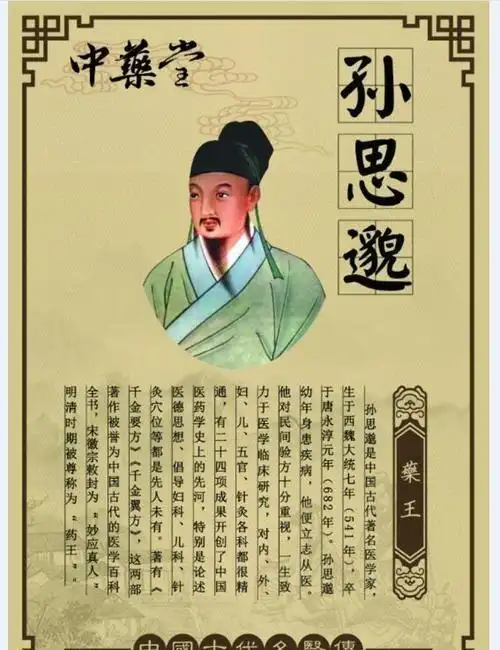 中藥堂
孙思邈
藥王
孙思邈是中国古代著名医学家，
生于西魏大统七年（541年），卒
于唐永淳元年（682年）。孙思邈
幼年身患疾病，他便立志从医。
他对民间验方十分重视，一生致
力于医学临床研究，对内、外、
妇、儿、五官、针灸各科都很精
通，有二十四项成果开创了中国
医药学史上的先河，特别是论述
医德思想、倡导妇科、儿科、针
灸穴位等都是先人未有。著有《
千金要方》《千金翼方》，这两部
著作被誉为中国古代的医学百科
全书，宋徽宗敕封为“妙应真人”
明清时期被尊称为“药王”。
中國古代名醫傳